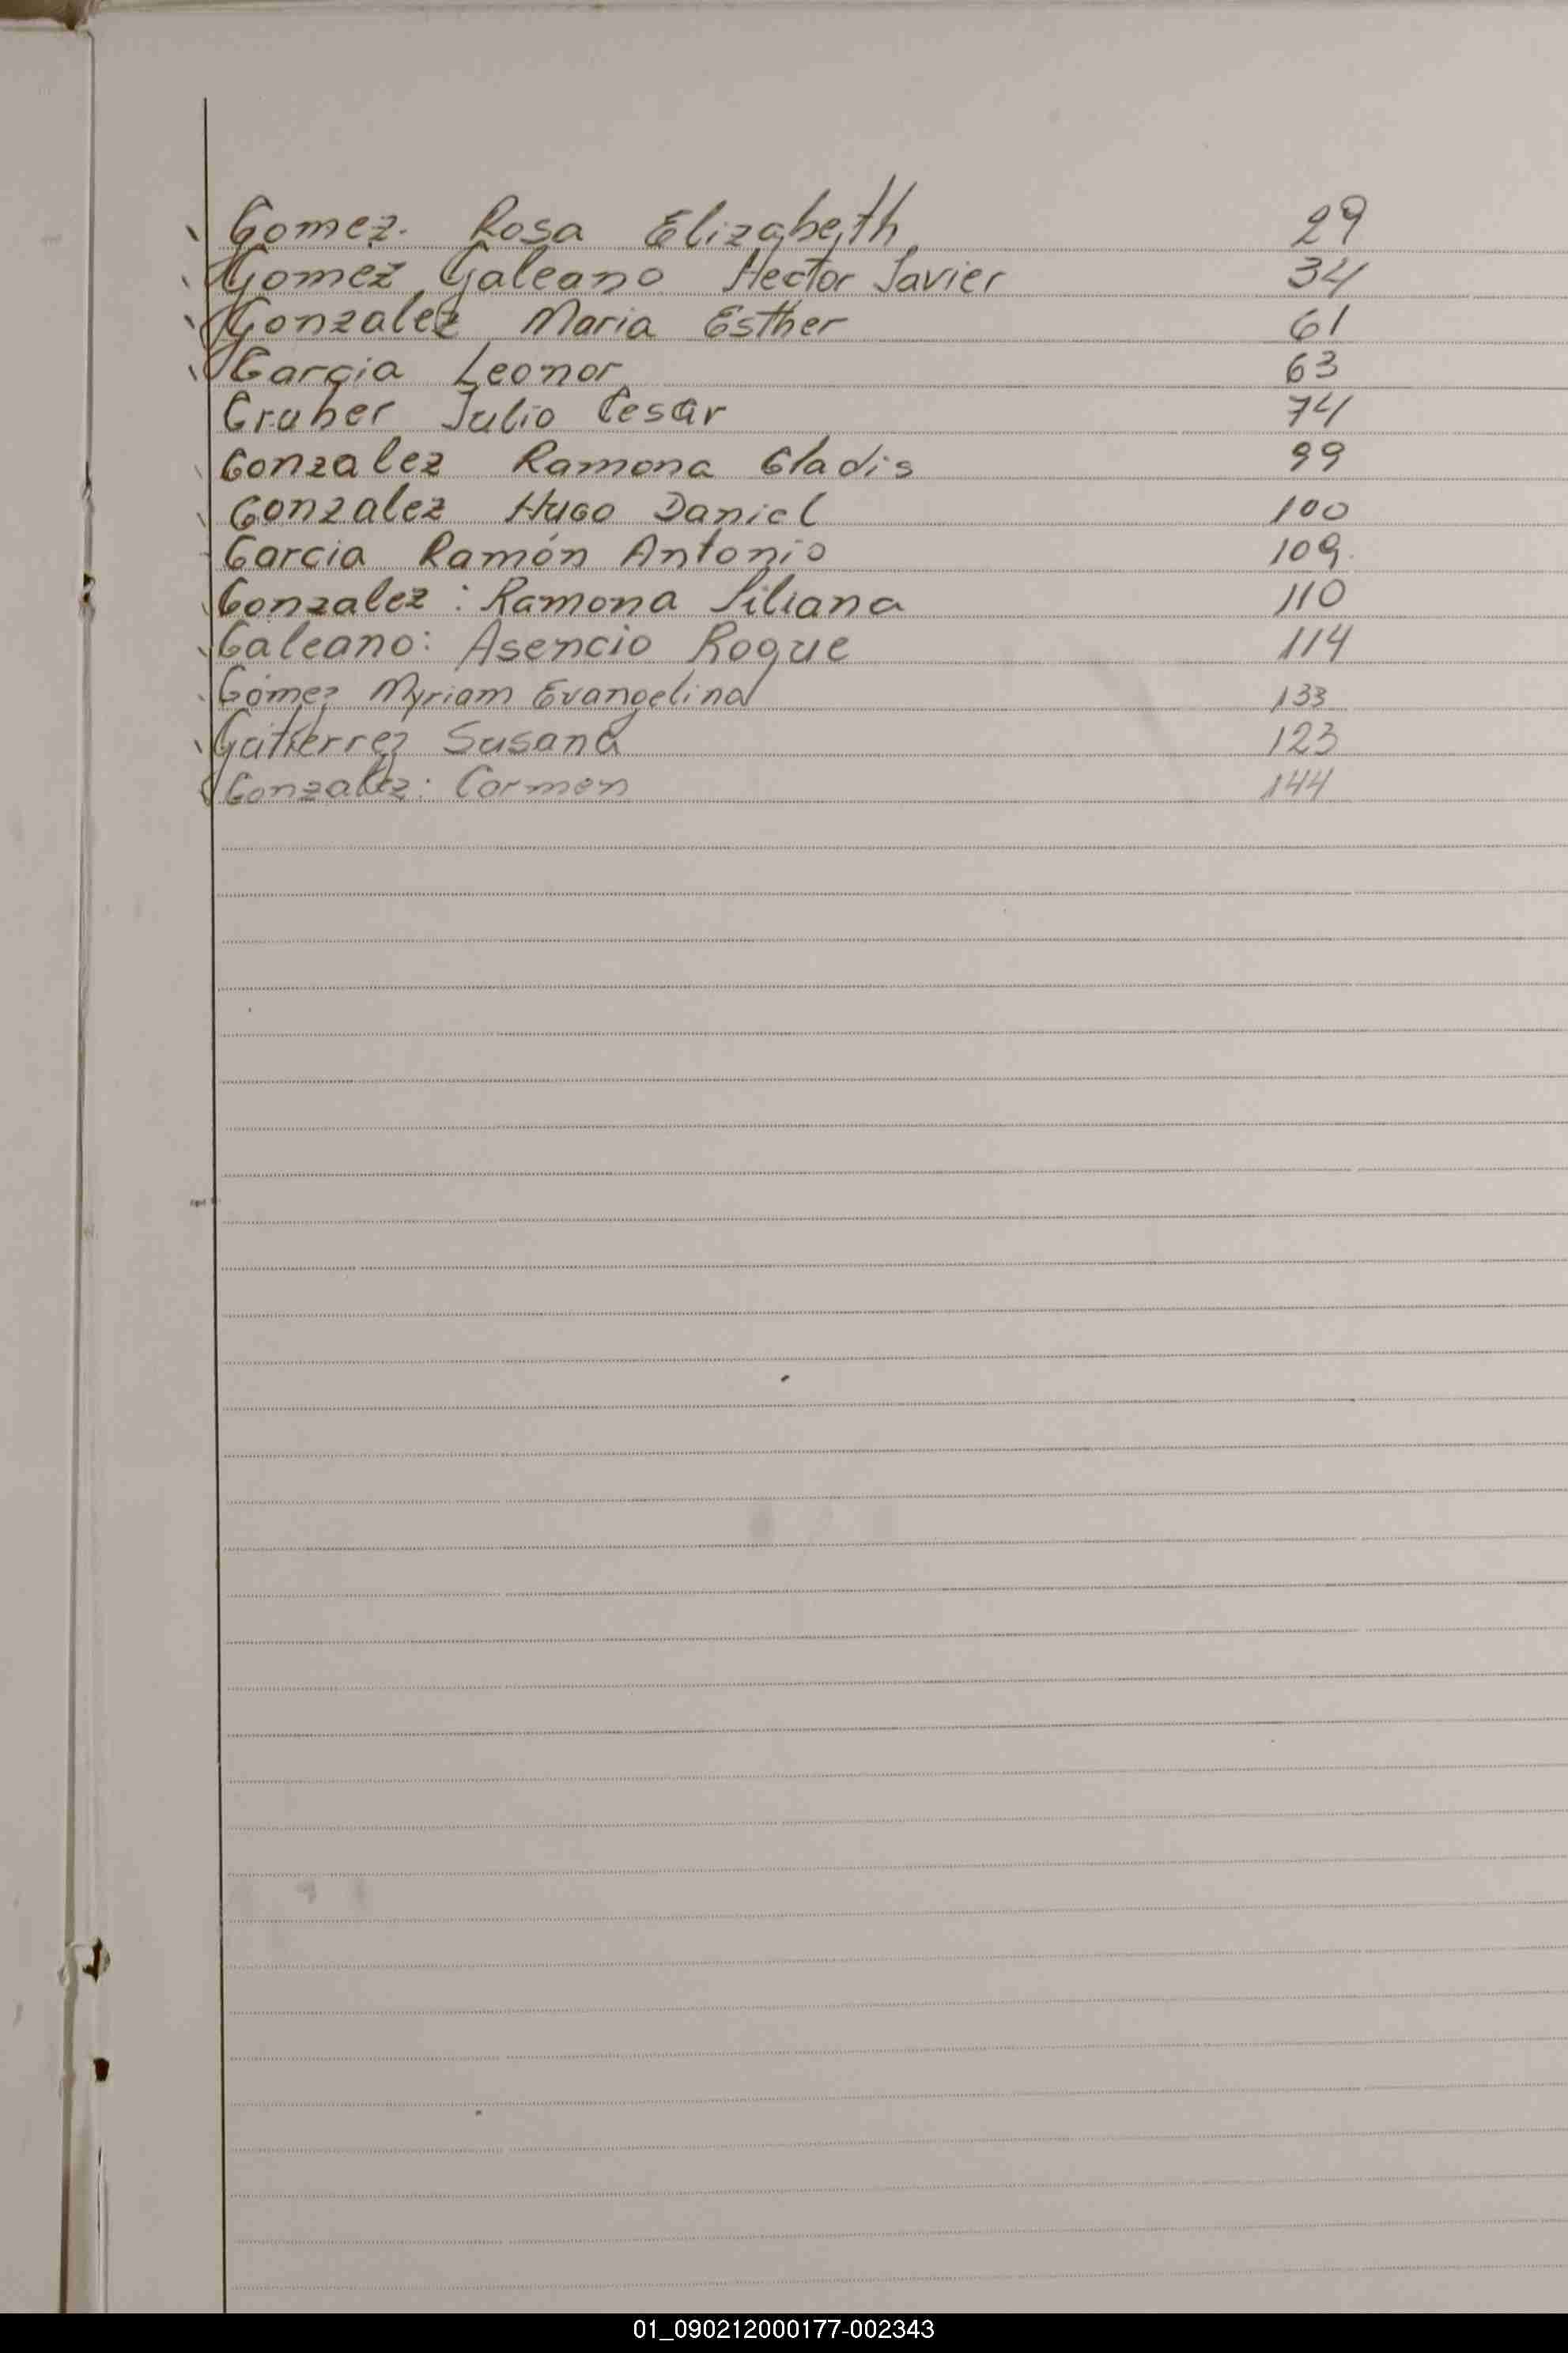 Gomez. Rosa Elizabeth. 29
Gomez Galeano Hector Javier 34
Gonzalez Maria Esther 61
Garcia Leonor 63
Gruber Julio Cesar 74
Gonzalez Ramona Gladis 99
Gonzalez Hugo Daniel 100
Garcia Ramón Antonio 109
Gonzalez: Ramona Liliana 110
Galeano: Asencio Roque 114
Gómez Myriam Evangelina 133
Gutierrez Susana 123
Gonzalez: Carmen 144
01_090212000177-002343